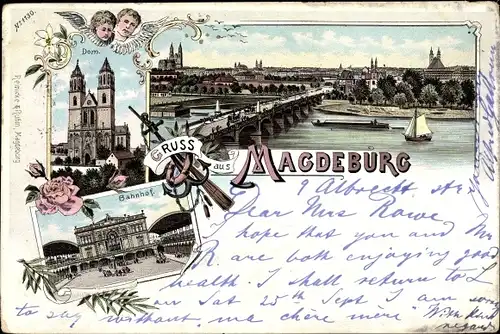 No 1130.
Dom.
Reinicke & Rubin, Magdeburg
GRUSS
aus
MAGDEBURG
Bahnhof.
9 Albrecht
Dear Mrs Rowe.
I hope that you and Mr
R. are both enjoying good
health. I shall return to L
on Sat 25th Sept I am sorry
to say without ma chère mère. With kind
regards